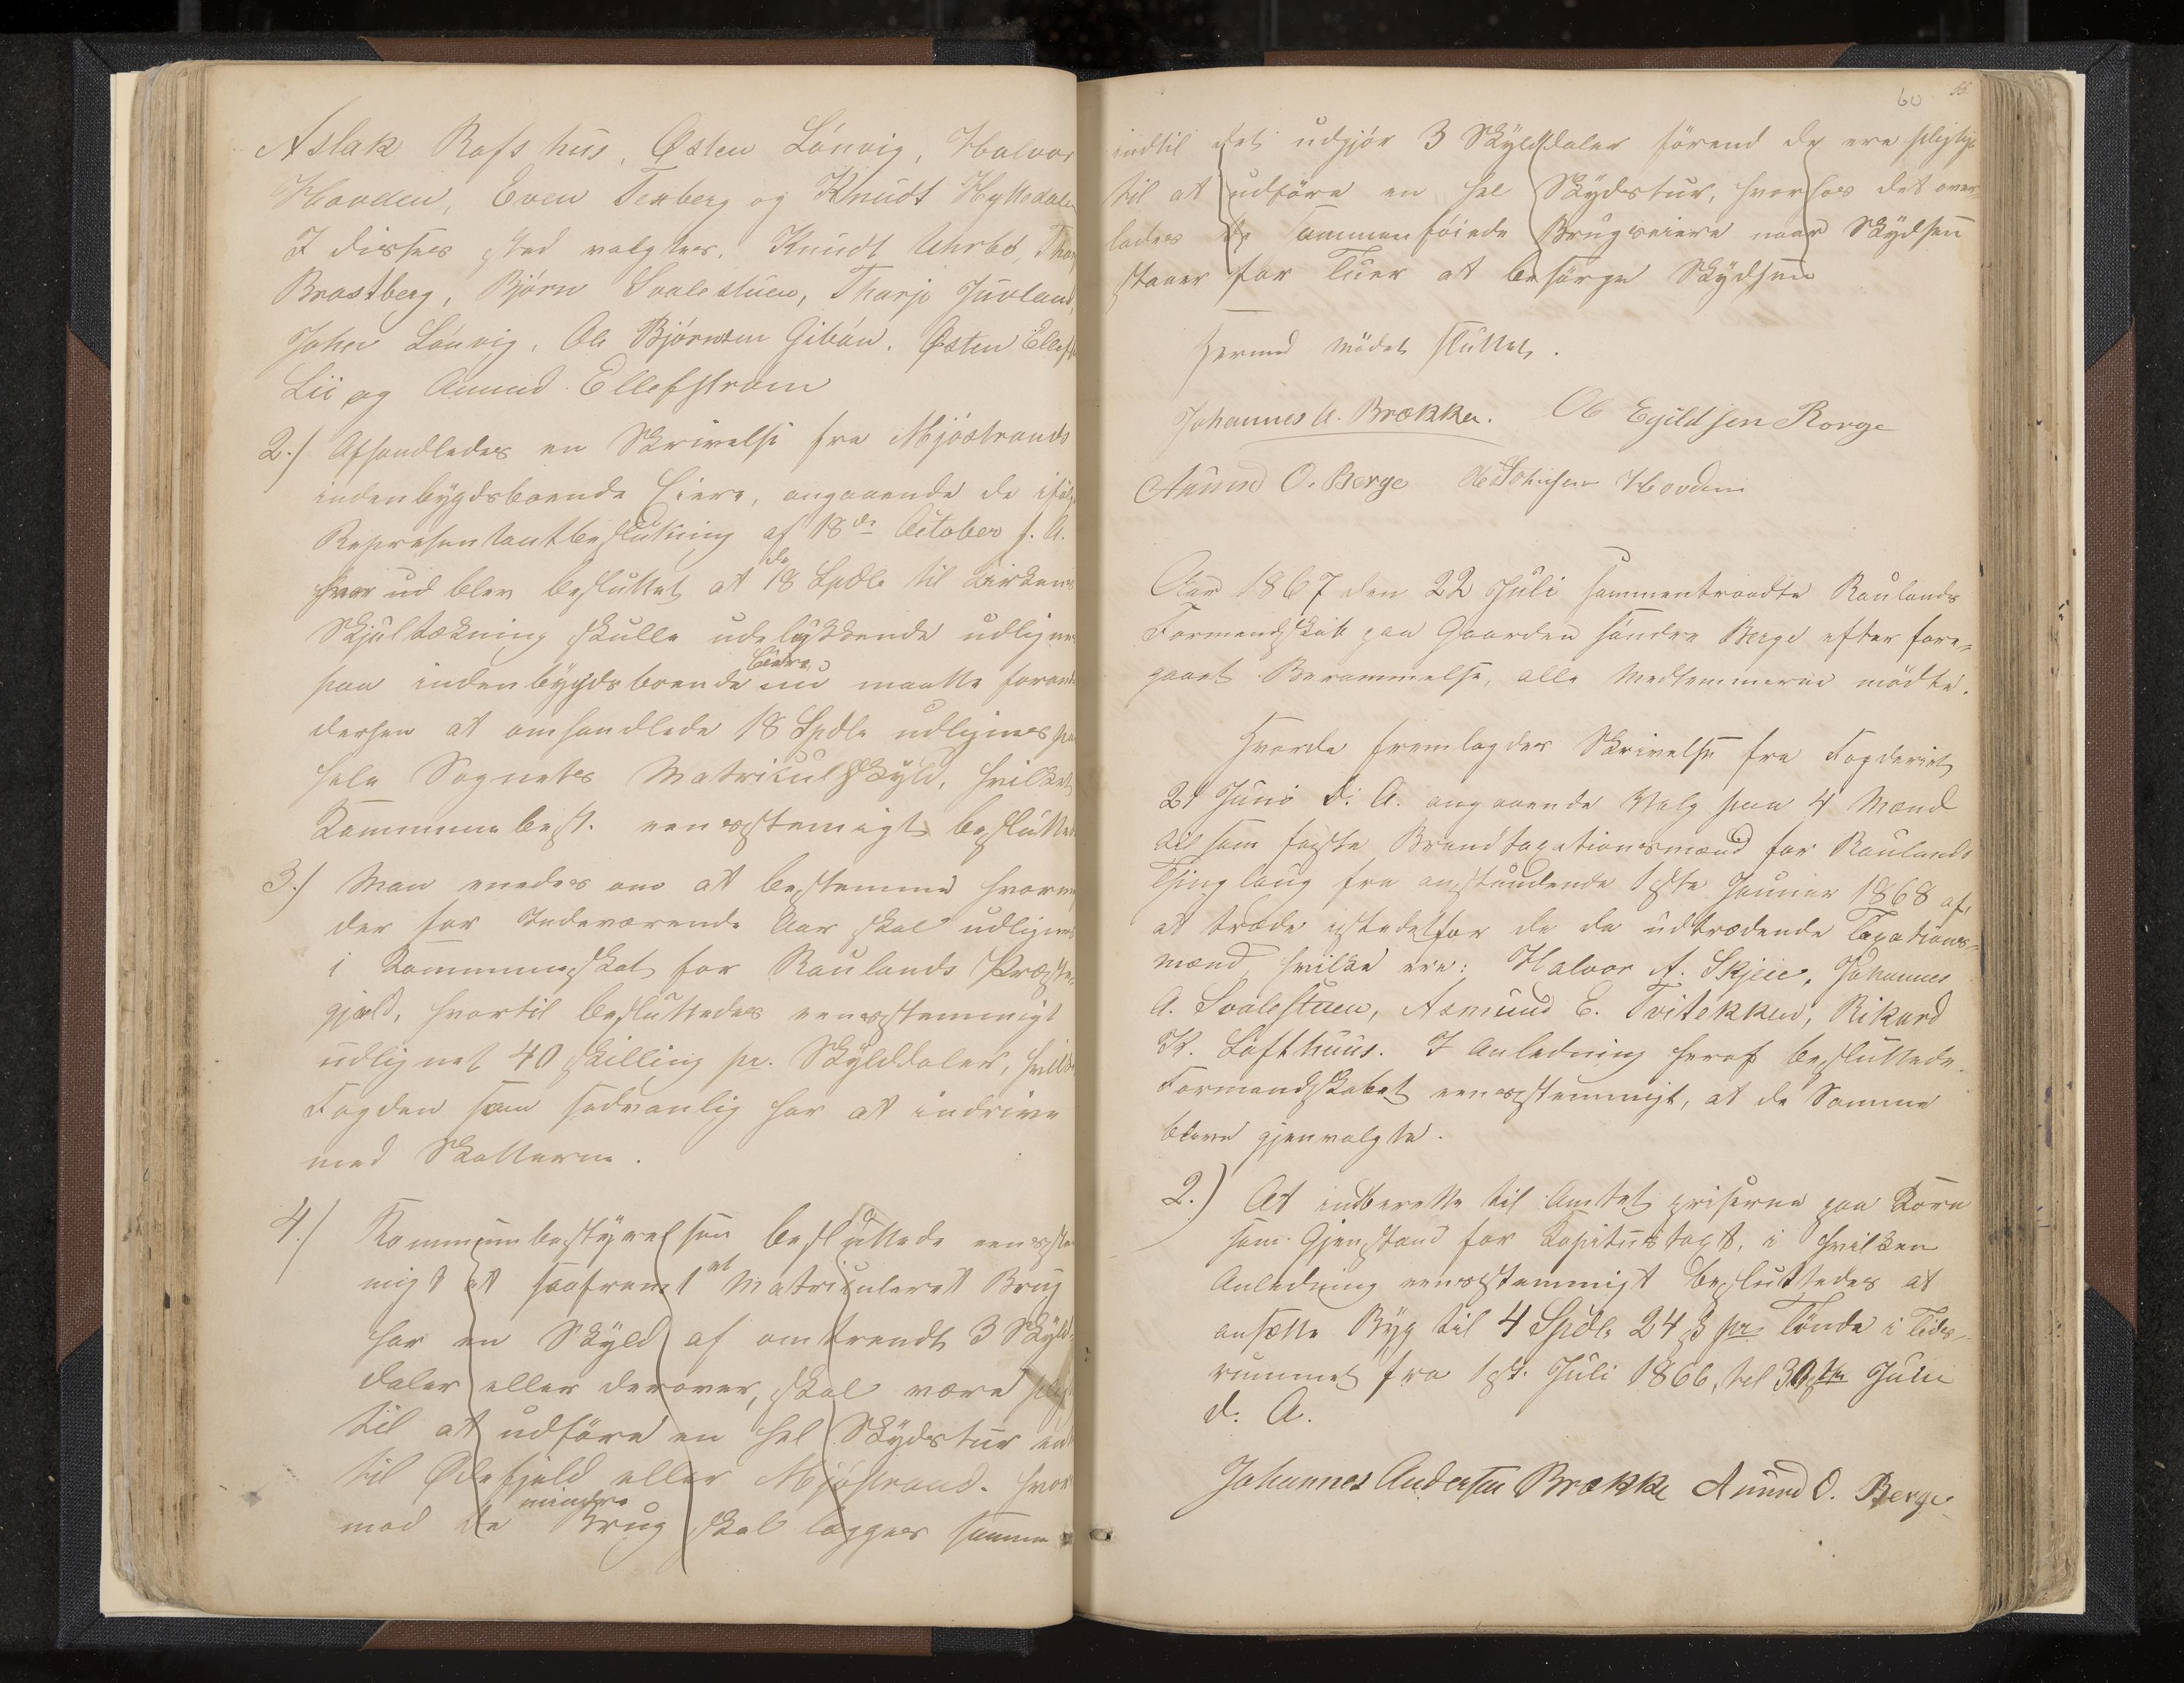 Aslak Rafshus, Østen Lønvig, Halvor
Hovden, Even Texberg og Knudt Hyltedalen
I disses sted valgtes. Knudt Uhrbø, Thor
Brastberg, Bjørn Svalestuen, Tharje Juvland,
John Lønvig, Ole Bjørnsen Gibøn. Østen Ellefs
Lii og Amund Ellefstrøm
2./ Afhandledes en Skrivelse fra Mjøstrands
indenbygdsboende Eiere, angaaende de ifølge
Repræsentantbeslutning af 18de October f. A.
hvor ud blev besluttet at de 18 Spdlr til Kirkens
Skjultækning skulle udelukkende udlignes
paa indenbygdsboende Eiere nu maatte foran
dersen at omhandlede 18 Spdlr udlignes paa
hele Sognets Matriculskyld, hvilket
Kommunebest. eensstemigt besluttet
3./ Man enedes om at bestemme hvorme
der for Indeværende Aar skal udlignes
i Kommuneskat for Raulands Præste-
gjæld, hvortil besluttedes eensstemmigt
udlignet 40 skilling pr. Skylddaler, hvilke
Fogden som sedvanlig har at indrive
med Skatterne.
4./ Kommunbestyrelsen besluttede eensste
migt at saafremt et Matriculeret Brug
har en Skyld af omtrendt 3 Skyld-
daler eller derover, skal være pligt
til at udføre en hel Skydstur en
til Ødefjeld eller Mjøstrand. hvor
mod de mindre Brug skal lægges samme
60
indtil det udgjør 3 Skylddaler førend de ere pligtige
til at udføre en hel Skydstur, hvorhos det over-
lades de sammenføiede Brugseiere naar Skydsen
staaer for Tuer at besørge Skydsen
Hermed mødet sluttet.
Johannes A. Brække. Ole Egildsen Rorge
Aamund O. Berge Ole Johnsen Hovden
Aar 1867 den 22 Juli sammentraadte Raulands
Formandskab paa Gaarden søndre Berge efter fore-
gaaet Berammelse, alle Medlemmerne mødte.
Hvorda fremlagdes Skrivelse fra Fogderiet
21 Juni d. A. angaaende Valg paa 4 Mænd
til som faste Brandtaxationsmænd for Raulands
Thinglaug fra anstundende 1ste Januar 1868 af,
at træde istedetfor de da udtrædende Taxations-
mænd, hvilke ere: Halvor A. Skjeie, Johannes
A. Svalestuen, Asmund E. Tvitekken, Rikard
K. Lofthuus. I Anledning heraf besluttede
Formandskabet eensstemmigt, at de Samme
bleve gjenvalgte.
2.) At indberette til Amtet priserne paa Korn
som Gjenstand for Kapitulstaxt, i hvilken
Anledning eensstemmigt besluttedes at
ansætte Byg til 4 Spdlr 24 ß pr Tønde i Tids-
rummet fra 1ste Juli 1866, til 30te Juni
d. A.
Johannes Andersen Brække Amund O. Berge